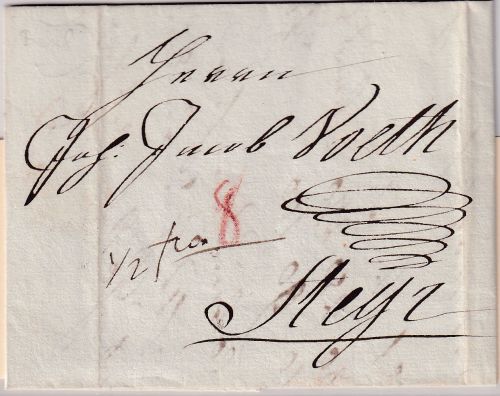 Herrn
Joh. Jacob Voeth
8
1/2 fco
Steyr